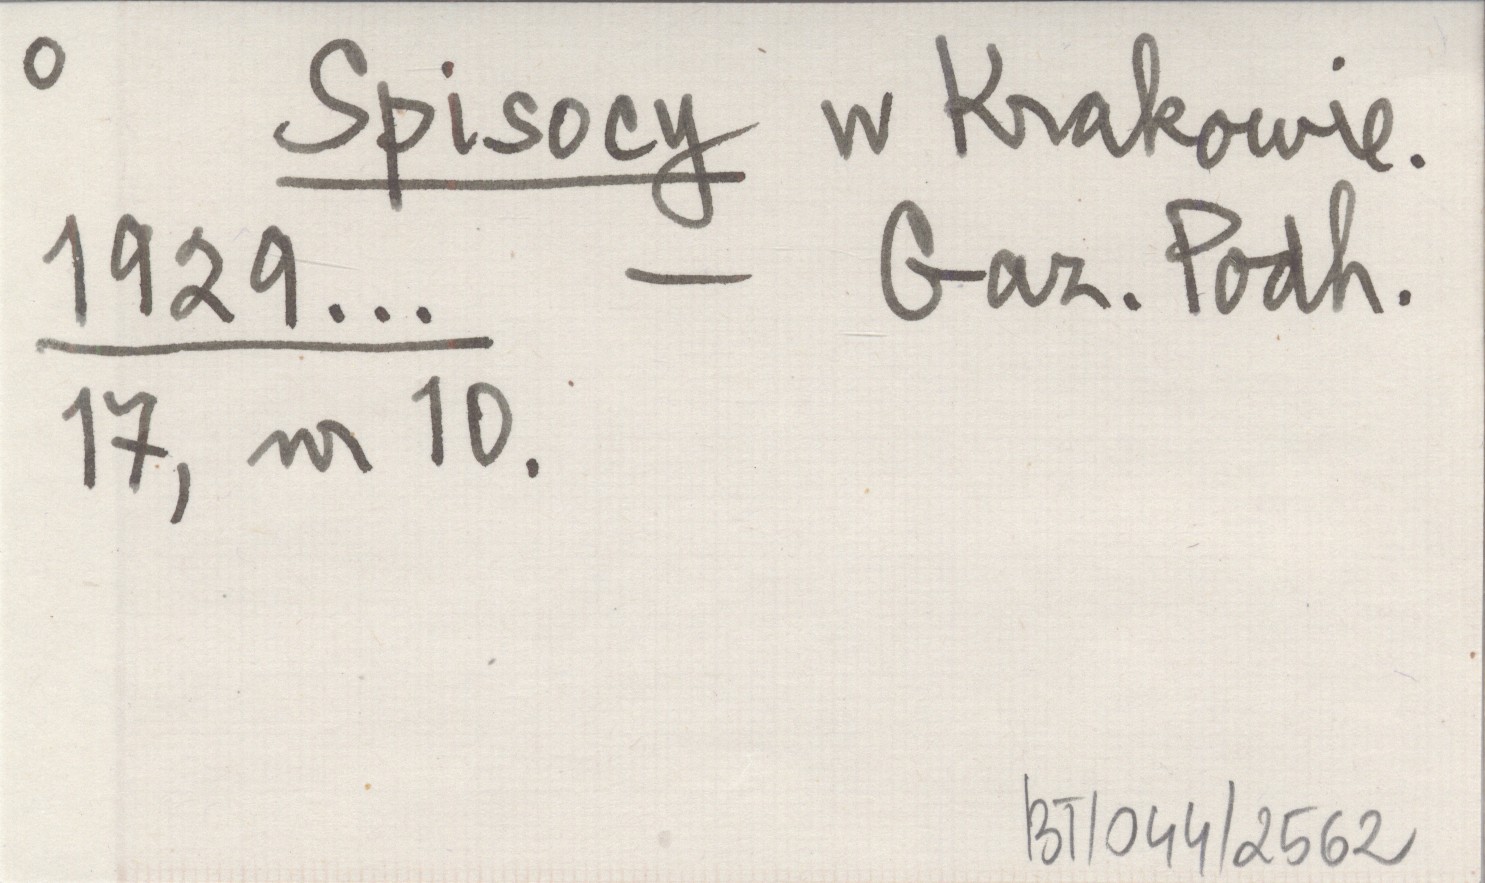 o Spisocy w Krakowie.
1929... — Gaz. Podh.
17, nr 10.
BT/044/2562